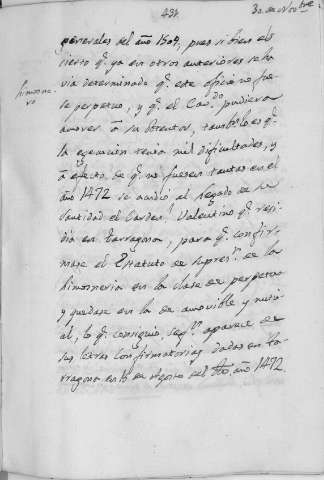 431.
30 de Nov.bre
generales del año 1504, pues si bien es
cierto q.e ya en otros anteriores se ha-
via determinado q.e este oficio no fue-
limosne-
ro
se perpetuo, y q.e el Cav.do pudiera
amover á su obtentor, tambien lo es q.e
la egecucion tenia mil dificultades, y
á efecto de q.e no fuesen tantas en el
año 1472 se acudió al Legado de su
Santidad el Carden.l Valentino q.e resi-
dia en Tarragona, para q.e confir-
mase el Estatuto de supres.n de la
limosneria en la clase de perpetuo
y quedase en la de amovible y nutu-
al, lo q.e consiguió, seg.n aparece de
sus letras confirmatorias dadas en Ta-
rragona en 15 de Agosto del año 1472.